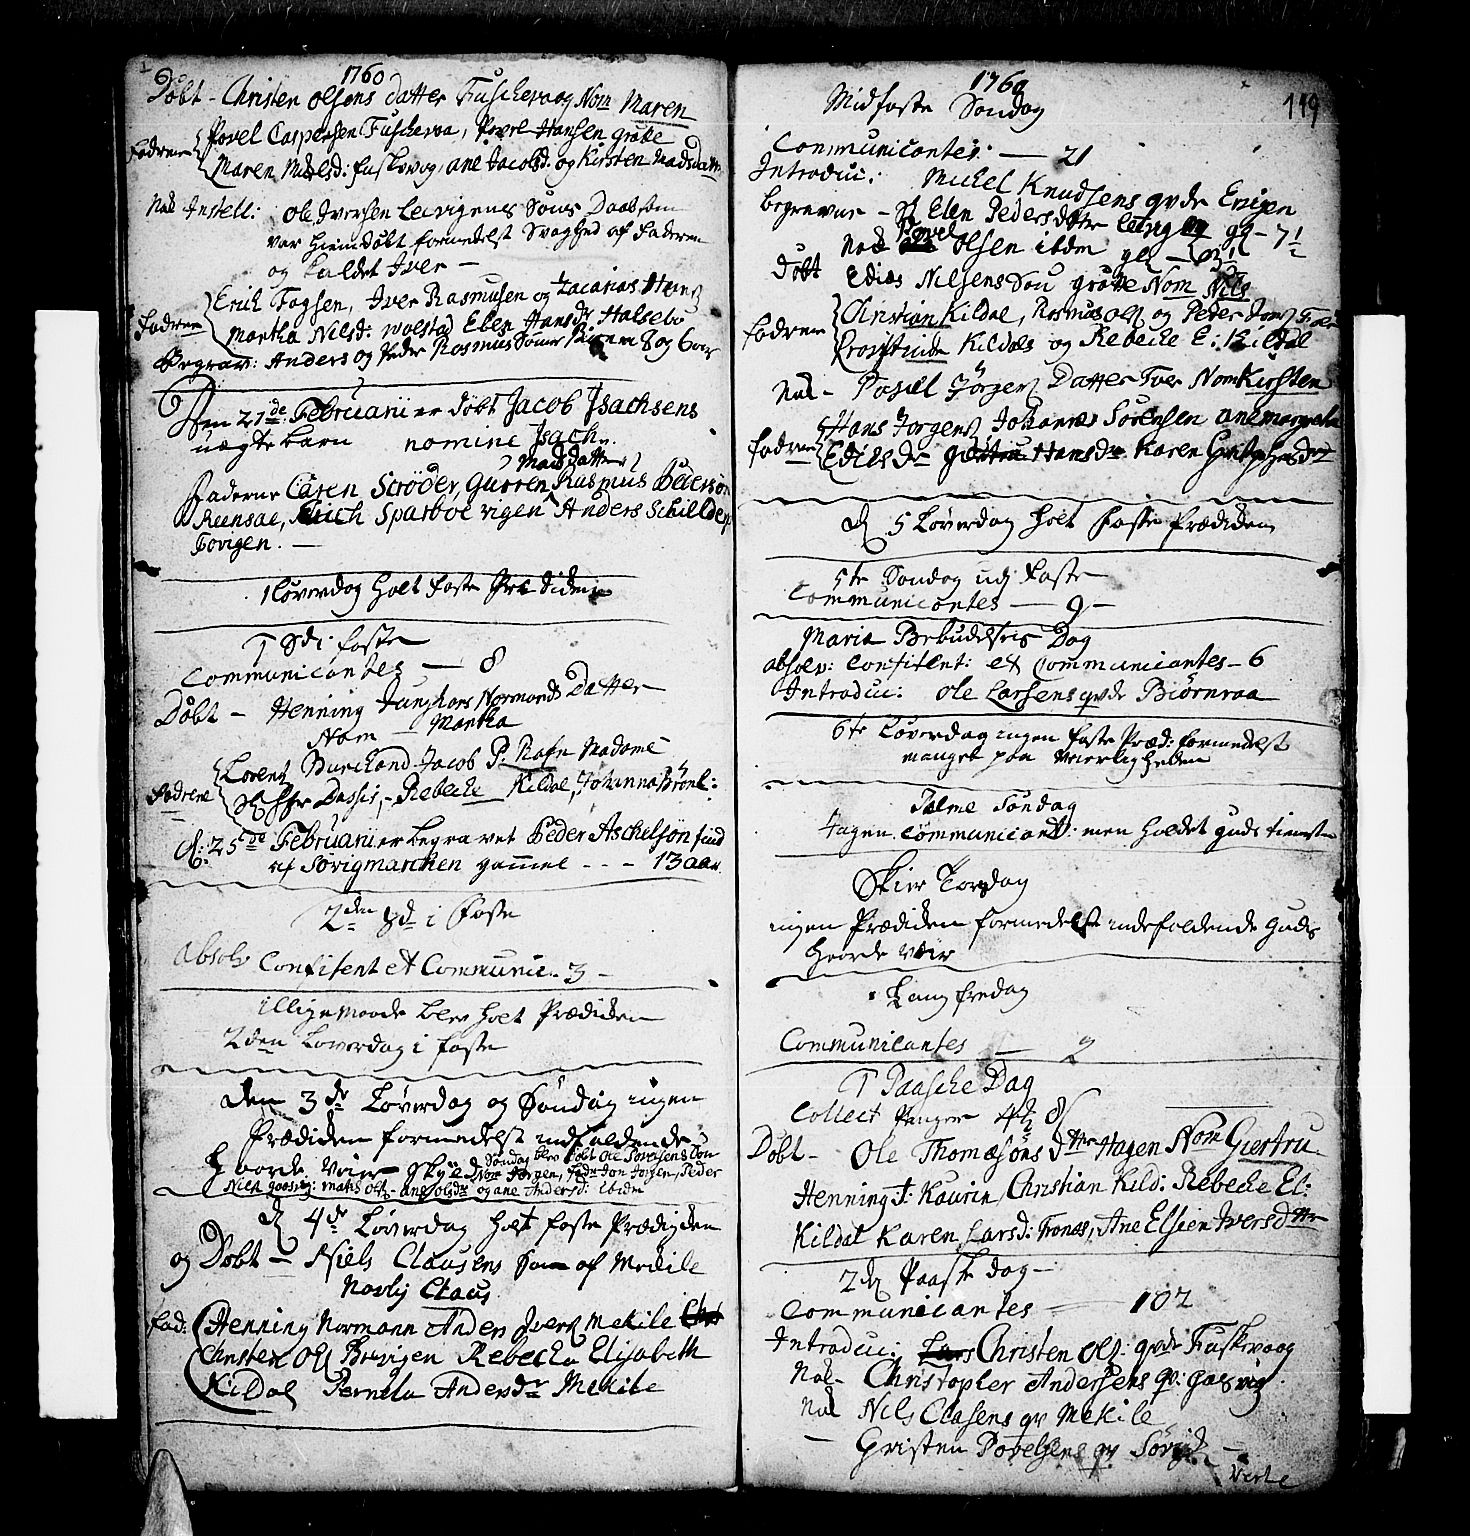 1760
Døbt - Christen Olsens datter Fuschevog Nom Maren
Fadrene Povel Caspersen Fuschevaa, Povel Hansen grøtte
Maren Nielsd: Fuskevog, ane Jacobsd: og Kirsten Madsdatter
Nok Instell: Ole Iversen Leivigens Søns Daab som
var hiemdøbt formedelst Svaghed af Faderen
og kaldet Iver -
Fadrene Erich Fogsen, Iver Rasmusen og Zacarias
Martha Nilsd: Elen Hansdr Halsebø
Begrav: Anders og Peder Rosmus Sønner 8 og 6 aar
Den 21de Februarii er døbt Jacob Jsachsens
uægte barn nomine Jsach.
Madsdatter
Faderne Caren Scrøder, Gurren Rasmus Pederson
Reensaa, Erich Sparboe vigen Anders Schielder
Tovigen. -
1 Løverdag holt faste Prædiken
1 Sdi faste
Communicantes - 8
Døbt - Henning Junghans Normands Datter
Nom - Martha
Fadrene Lorentz Burchard Jacob P: Rafn Madame
Dassis, - Rebecke Kildal, Johanna Brønl:
d: 25de Februarii er begravet Peder Aschelsøn find
af Sørigmarchen gammel - - - 13 aar.
2den Sd i Faste
Absolv Confitent et Communic. 3 -
illige maade blev holt Prædiken
2den Løverdag i faste
den 3de Løverdag og Søndag ingen
Prædiken formedelst indfaldende
haarde Vær Søndag blev døbt Ole Sørensens Søn
Nom Jørgen, Fadr Jon Jørgen, Peder
ane og ane Andersd: ibidm
d 4de Løverdag holt faste Prædiken
og Døbt - Niels Clausens Søn af Mekile
Navlig Claus
Fad: Henning Normann Anders Iversen Mekile
Christen Ols Rebecka Elisabeth
Kildal Pernela Andersdr Mekile
1760
119
Midfaste Søndag
Communicantes. - 21
Introduc: Michel Knudsens qvde Enigen
begravne - Elen Pedersdatter Letvig gl - 7 1/2
Nok Povel Olsen itdm gl
Døbt Edias Nilsens Søn grøtte Nom Nils
Fadrene Christian Kildal, Rasmus Ols og Peder
Kildals og Rebecke E: Kildal
Nok - Povel Jørgens Datter Tver Nom Kirsten
Fadrene Hans Jørgens Johannes Sørensen anemargreta
Edilsdr Hansdr Karen
d. 5 Løverdag holt Faste Prædiken
5te Søndag udj Faste
Communicantes - 9 -
Maria Bebudelses Dag
absolv: Confitent: et Communicantes - 6
Introduc: Ole Larsens qvde Biørnraa
6te Løverdag ingen faste Præd: formedelst
manget paa Veierligheden
Palme Søndag
Ingen Communicant: men holdet guds tieneste
Skier Torsdag
ingen Prædiken formedelst indefaldende Guds
haarde Veir
Lang fredag
Communicantes - 2
1 Paasche Dag
Collect Penger 4 1/2
Døbt - Ole Thomæsøns dttr Hagen Nom Giertru.
Henning J: Kaurin, Christian Kild: Rebecke El:
Kildal Karen Larsd: Tronæs, Ane Elsien Iversdttr
2den Paaske dag -
Communicantes - 102
Introduc: Christen Ols: qvde Fuskevaag
Nok - Christopher Andersens qv: gaasvig
Nok Nils Clasens qv Mekile
- Gristen Povelsens qv Sørvig -
Verte